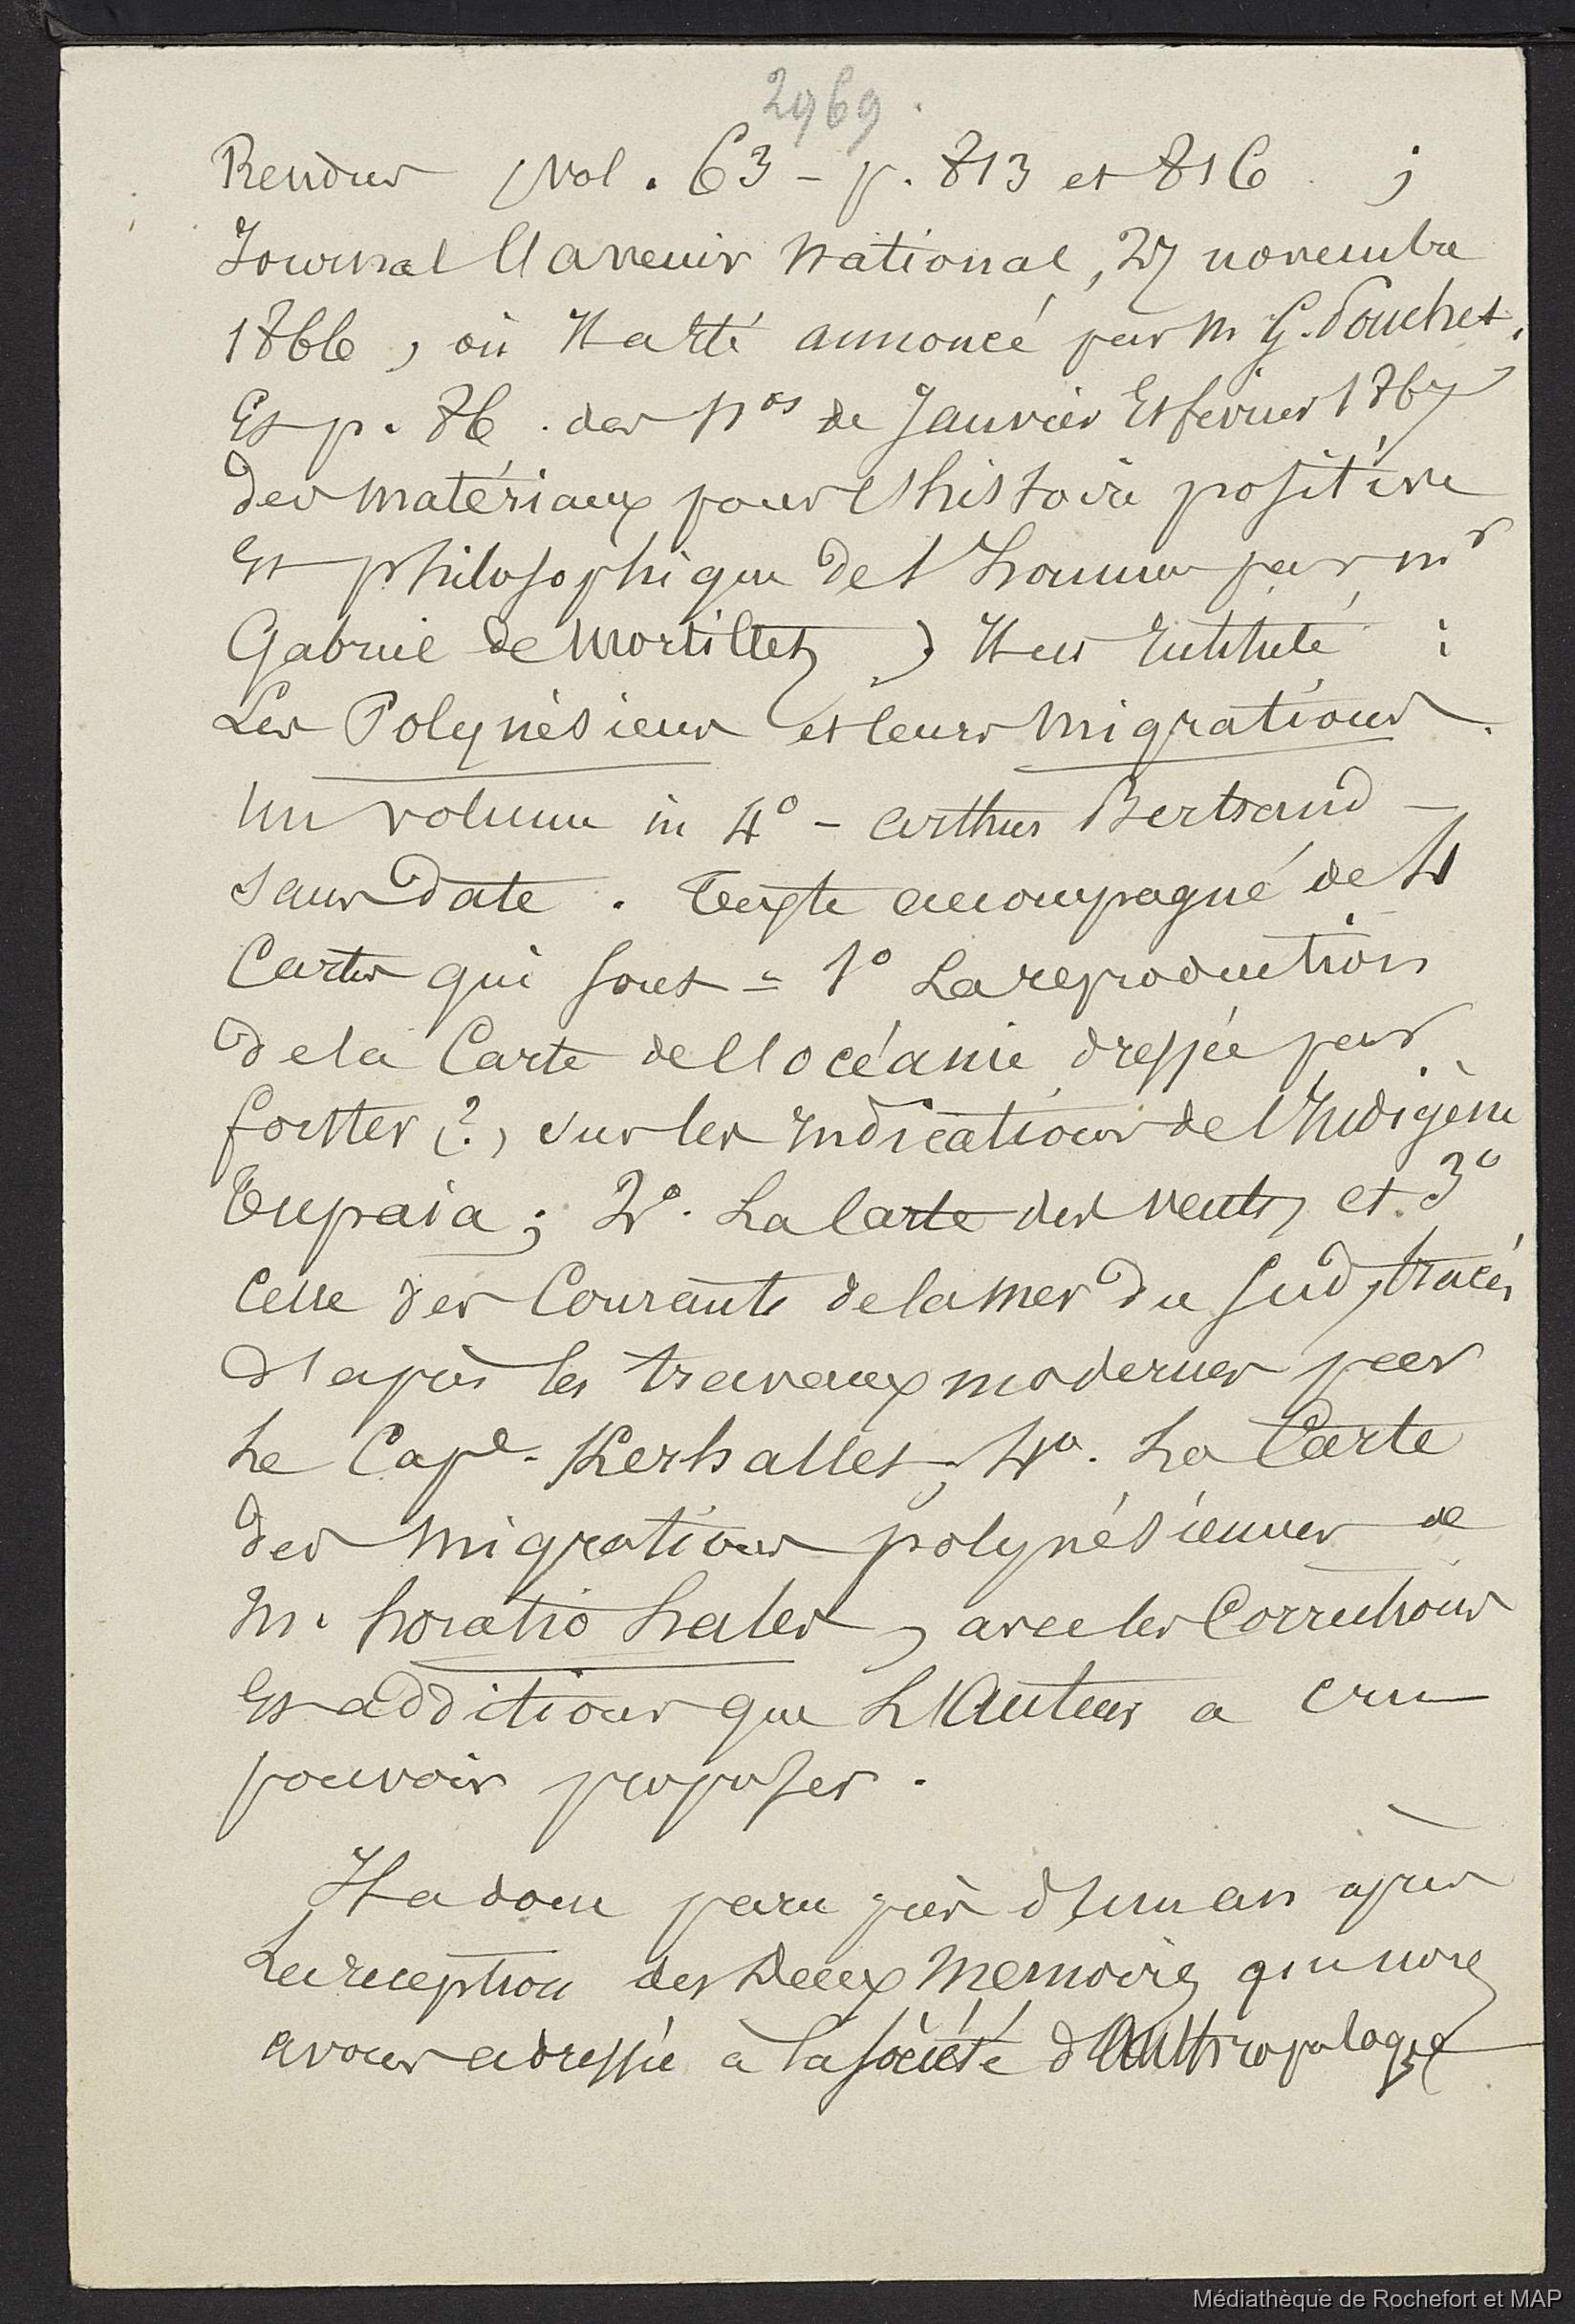 2969.
Rendus (Vol. 63 - p. 813 et 816 ;
Journal l'avenir National, 27 novembre
1866, où il a été annoncé par M G. Pouchet,
Et p. 86. des Nos de Janvier et février 1867
des matériaux pour l'histoire positive
et philosophique de l'homme par Mr
Gabriel de Mortillet) Il est Intitulé :
Les Polynésiens et leurs migrations.
Un volume in 4° - Arthus Bertrand -
sans date. Texte accompagné de 4
Cartes qui sont = 1° La reproduction
de la Carte de l'océanie dressée par
forster (?) sur les Indications de l'Indigène
Tupaia ; 2°. La Carte des vents, et 3°
Celle des Courants de la mer du Sud, tracés
d'après les travaux modernes par
Le Cape. Kerhallet ; 4°. La Carte
des migrations polynésiennes de
M. horatio hales, avec les Corrections
et additions que L'Auteur a cru
pouvoir proposer.
Il a donc paru près d'un an après
La réception des deux Memoires que nous
avons adressé à la Société d'Anthropologie